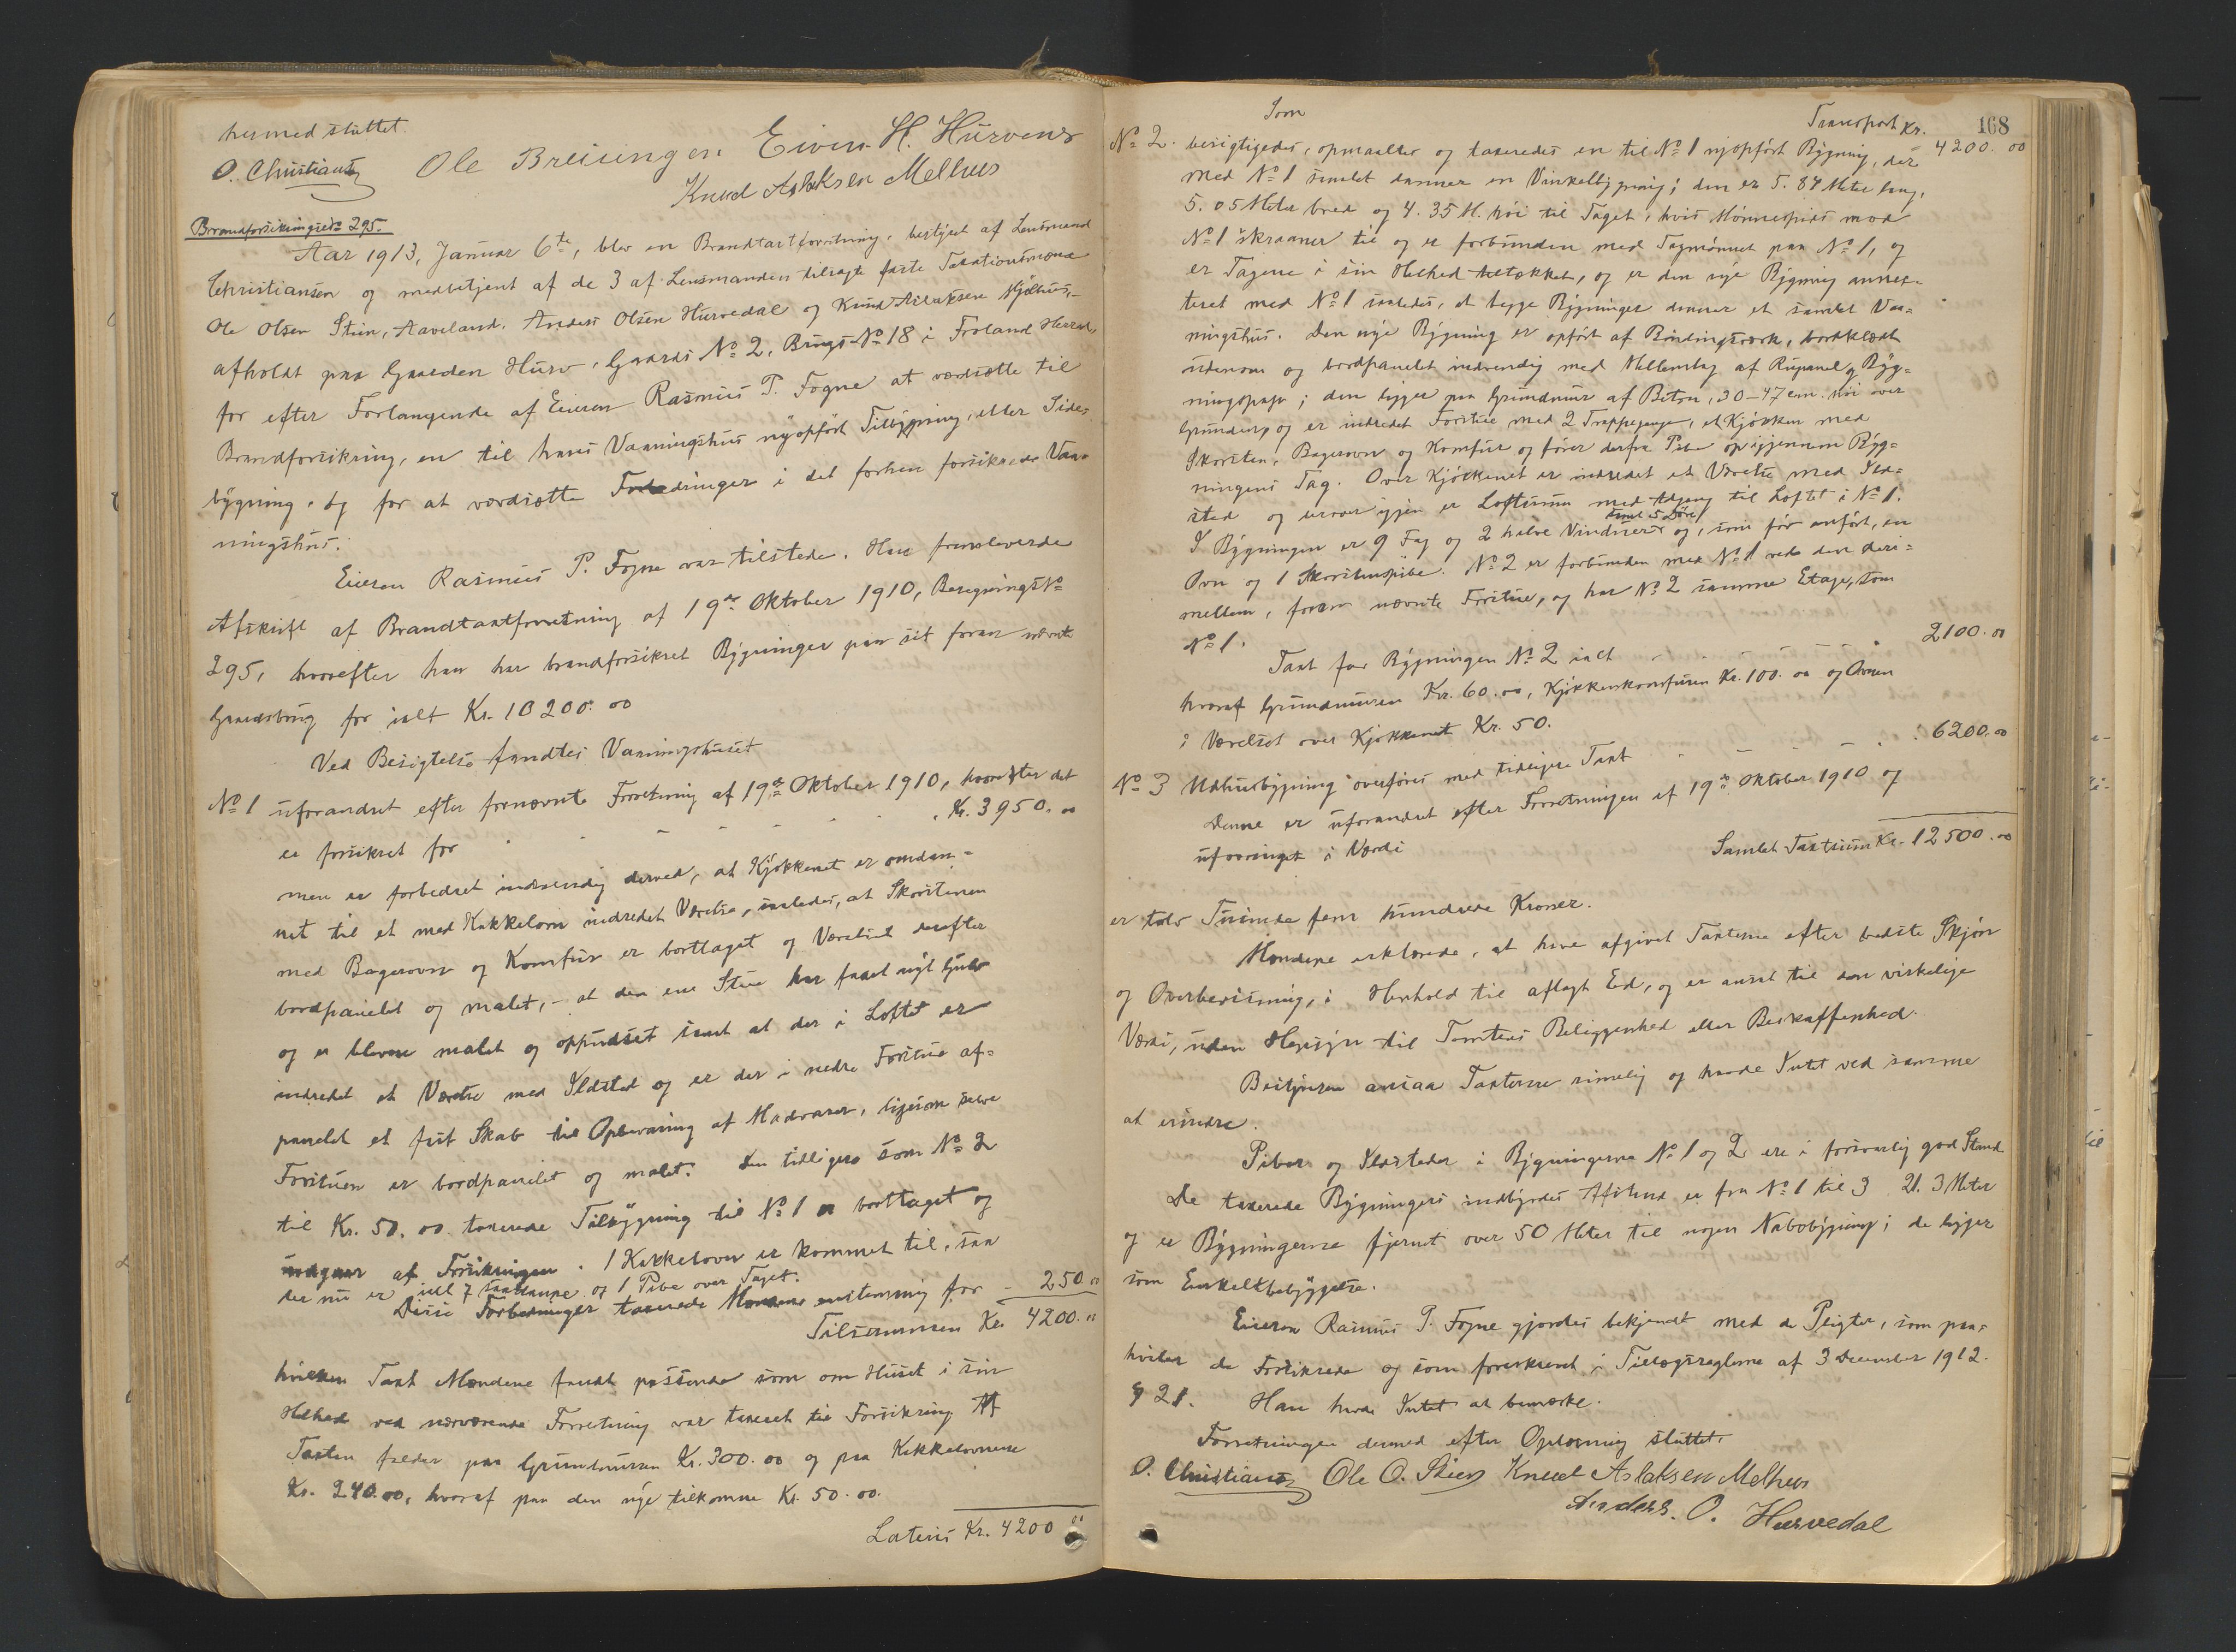 hermed sluttet.
O. Christiansen Ole Breiungen Eivin H. Hurvenes
Knud Aslaksen Melhus
Brandforsikringsid= 295.
Aar 1913, Januar 6te, blev en Brandtaxtforretning, bestyret af Lensmand
Christiansen og medbetjent af de 3 af Lensmanden tilsagte faste Taxationsmænd
Ole Olsen Stien, Aaveland, Anders Olsen Hurvedal og Knud Aslaksen Mjølhus,
afholdt paa Gaarden Hurv, Gaards No 2, Brugs No 18 i Froland Herred,
for efter Forlangende af Eieren Rasmus P. Fogne at værdsætte til
Brandforsikring, en til hans Vaaningshus nyopført Tilbygning, eller Side-
bygning, og for at værdsætte Forbedringer i det forhen forsikrede Vaa-
ningshus.
Eieren Rasmus P. Fogne var tilstede. Han fremleverde
Afskrift af Brandtaxtforretning af 19de Oktober 1910, Beregnings No
295, hvorefter han har brandforsikret Bygninger paa sit foran nævnte
Gaardsbrug for ialt Kr. 10 200.00
Ved Besigtelse fandtes Vaaningshuset
No 1 uforandret efter fornævnte Forretning af 19de Oktober 1910, hvorefter det
er forsikret for - - - - - Kr. 3950.00
men er forbedret indvendig derved, at Kjøkkenet er omdan-
net til et med Kakkelovn indredet Værelse, saaledes, at Skorstenen
med Bagerovn og Komfur er borttaget og Værelset derefter
bordpanelet og malet, - at den ene Stue har faaet nyt Gulv
og er bleven malet og oppudset samt at der i Loftet er
indredet et Værelse med Ildsted og er der i nedre Forstue af-
panelet et fast Skab til Opbevaring af Madvarer, ligesom selve
Forstuen er bordpanelet og malet. Den tidligere som No 2
til Kr. 50.00 taxerede Tilbygning til No 1 er borttaget og
udgaar af Forsikringen. 1 Kakkelovn er kommet til, saa
der nu er ialt 7 saadanne og 1 Pibe over Taget.
Disse Forbedringer taxerede Mændene enstemmig for - 250.00
Tilsammen Kr. 4200.00
hvilken Taxt Mændene fandt passende som om Huset i sin
Helhed ved nærværende Forretning var taxeret til Forsikring. Af
Taxten falder paa Grundmuren Kr. 300.00 og paa Kakkelovnene
Kr. 240.00, hvoraf paa den nye tilkomne Kr. 50.00.
Lateris Kr. 4200.00
168
Som Transport Kr. 4200.00
No 2. besigtigedes, opmaaltes og taxeredes en til No 1 nyopført Bygning, der
med No 1 samlet danner en Vinkelbygning; den er 5.84 Meter lang,
5.05 Meter bred og 4.35 M. høi til Taget, hvis Mønnespids mod
No 1 skraaner til og er forbunden med Tagmønnet paa No 1, og
er Tagene i sin Helhed tættækket, og er den nye Bygning annec-
teret med No 1 saaledes, at begge Bygninger danner et samlet Vaa-
ningshus. Den nye Bygning er opført af Bindingsværk, bordklædt
udenom og bordpanelet indvendig med Mellemlag af Rupanel og Byg-
ningspap; den ligger paa Grundmur af Beton, 30-47 cm. høi over
Grunden og er indredet Forstue med 2 Trappegange, et Kjøkken med
Skorsten, Bagerovn og Komfur og fører derfra Pibe op igjennem Byg-
ningens Tag. Over Kjøkkenet er indredet et Værelse med Ild-
sted og derover igjen er Loftsrum med Adgang til Loftet i No 1.
samt 5 Døre
I Bygningen er 9 Fag og 2 halve Vinduer og, som før anført, en
Ovn og 1 Skorstenspibe. No 2 er forbunden med No 1 ved den deri-
mellem, foran nævnte Forstue, og har No 2 samme Etage, som
No 1.
Taxt for Bygningen No 2 ialt - - - - - 2100.00
hvoraf Grundmuren Kr. 60.00, Kjøkkenkomfuren Kr. 100.00 og Ovnen
i Værelset over Kjøkkenet Kr. 50.
No 3 Udhusbygning overføres med tidligere Taxt - - - - 6200.00
Denne er uforandret efter Forretningen af 19de Oktober 1910 og
uforringet i Værdi
Samlet Taxtsum Kr. 12500.00
er tolv Tusinde fem hundrede Kroner.
Mændene erklærede, at have afgivet Taxterne efter bedste Skjøn
og Overbevisning, i Henhold til aflagt Eed, og er anset til den virkelige
Værdi, uden Hensyn til Tomtens Beliggenhed eller Beskaffenhed.
Bestyreren ansaa Taxterne rimelig og havde Intet ved samme
at erindre.
Piber og Ildsteder i Bygningerne No 1 og 2 ere i forsvarlig god Stand
De taxerede Bygningers indbyrdes Afstand er fra No 1 til 3 21.3 Meter
og er Bygningerne fjernet over 50 Meter til nogen Nabobygning; de ligger
som Enkeltbebyggelse.
Eieren Rasmus P. Fogne gjordes bekjendt med de Pligter, som paa-
hviler de Forsikrede og som foreskrevet i Tillægsreglerne af 3 December 1912.
§ 21. Han havde Intet at bemærke.
Forretningen dermed efter Oplæsning sluttet.
O. Christiansen Ole O. Stien Knud Aslaksen Melhus
Anders. O. Hurvedal